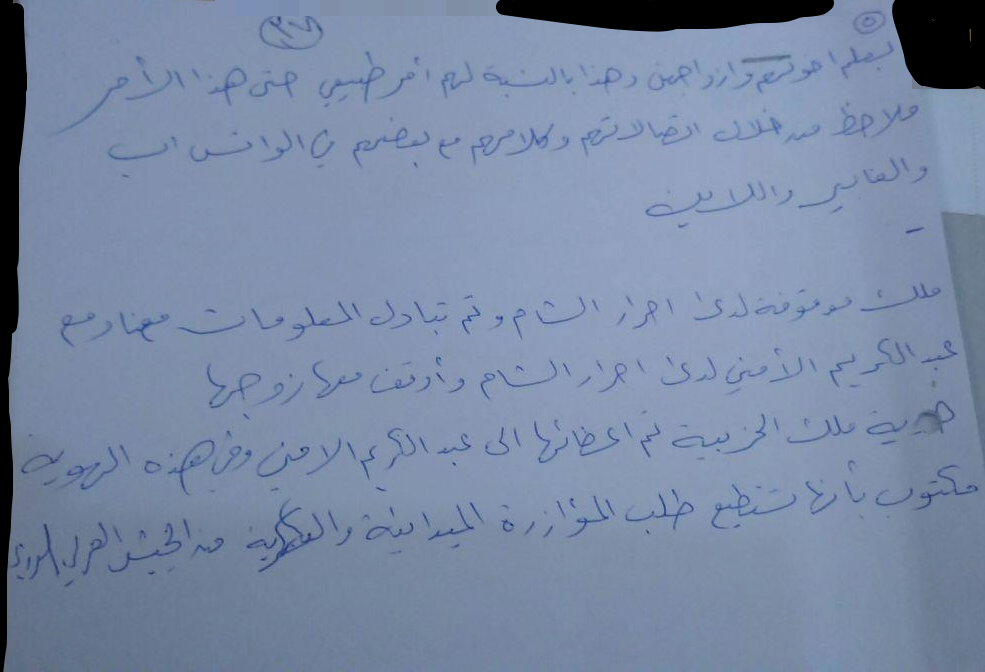 ٥
٣٧
بعلم اخوتهم وازواجهن وهذا بالنسبة لهم أمر طبيعي حتى هذا الأمر
ملاحظ من خلال اتصالاتهم وكلامهم مع بعضهم في الواتس اب
والفايبر واللاين
-
ملك موقوفة لدى احرار الشام وتم تبادل المعلومات معنا ومع
عبد الكريم الأمني لدى احرار الشام وأوقف معها زوجها
هوية ملك الحزبية تم اعطائها الى عبد الكريم الامني وفي هذه الهوية
مكتوب بأنها تستطيع طلب المؤازرة الميدانية والعسكرية من الجيش العربي السوري